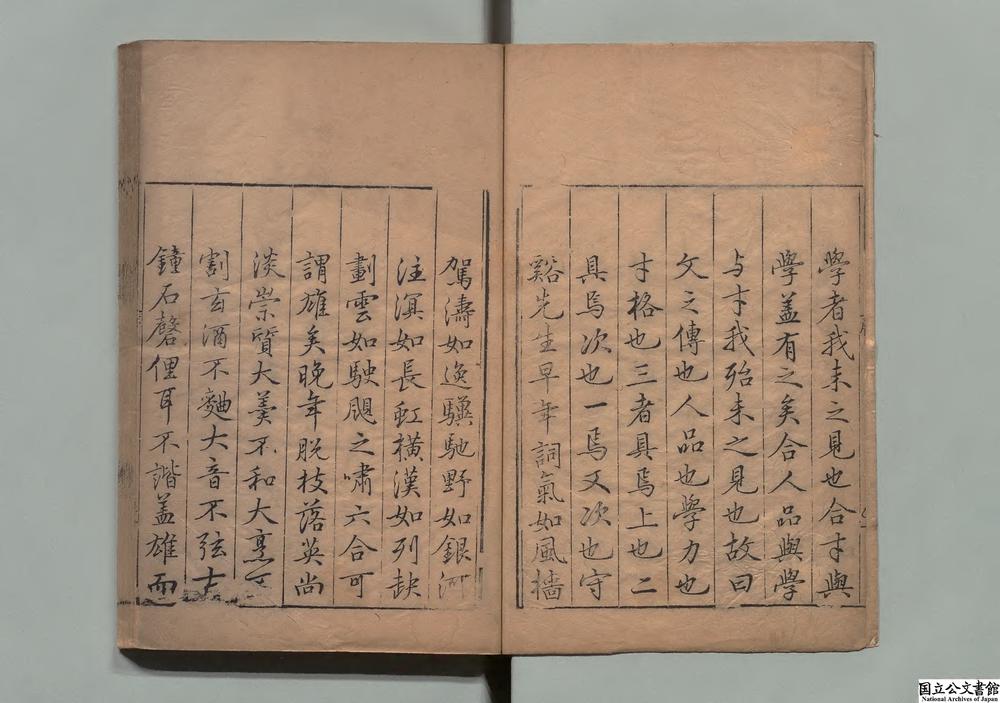 學者我未之見也合才與
學盖有之矣合人品與學
与才我殆未之見也故曰
文之傳也人品也學力也
才格也三者具焉上也二
具焉次也一焉又次也守
谿先生早年詞氣如風檣
駕濤如逸驥馳野如銀河
注溟如長虹橫漢如列缺
劃雲如駛飃之嘯六合可
謂雄矣晚年脫枝落英尚
淡崇質大羹不和大烹不
割玄酒不麴大音不弦古
鐘石磬俚耳不諧盖雄而
国立公文書館
National Archives of Japan